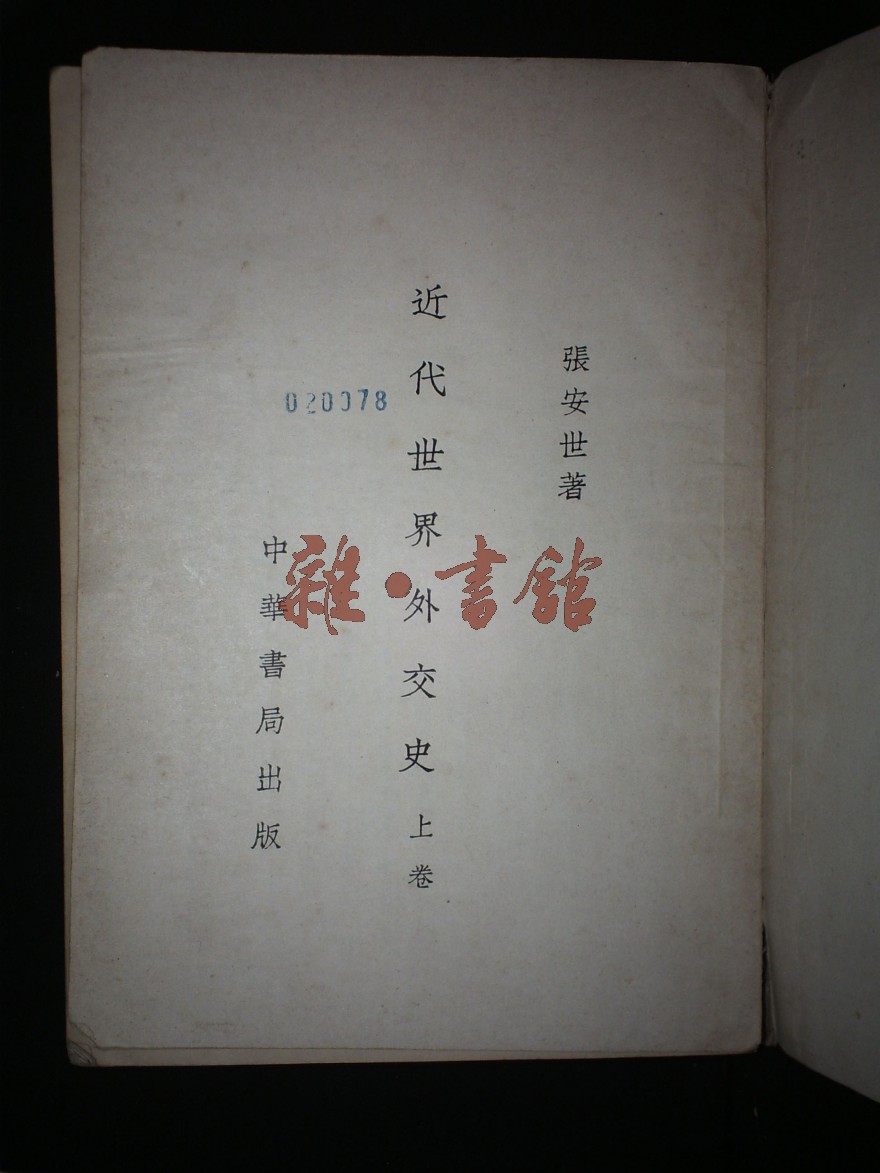 張安世著
近代世界外交史 上卷
020078
中華書局出版
雜·書館